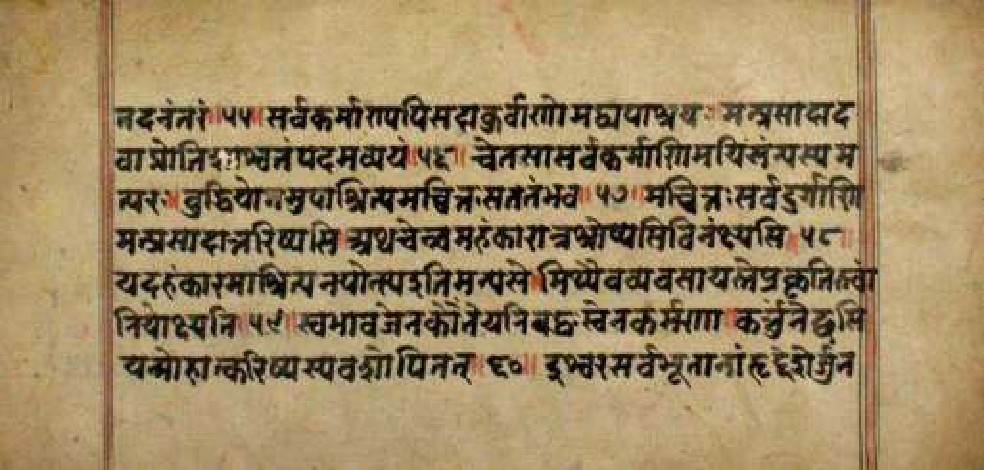 तदनंतरं ५५ सर्वकर्माण्यपिसदाकुर्वाणोमद्व्यपाश्रयः मत्प्रसादाद
वाप्नोतिशाश्वतंपदमव्ययं ५६ चेतसासर्वकर्माणिमयिसंन्यस्यम
त्परः बुद्धियोगमुपाश्रित्यमच्चित्तःसततंभव ५७ मच्चित्तःसर्वदुर्गाणि
मत्प्रसादात्तरिष्यसि अथचेत्त्वमहंकारान्नश्रोष्यसिविनंक्ष्यसि ५८
यदहंकारमाश्रित्यनयोत्स्यइतिमन्यसे मिथ्यैवव्यवसायस्तेप्रकृतिस्त्वां
नियोक्ष्यति ५९ स्वभावजेनकौंतेयनिबद्धःस्वेनकर्मणा कर्तुंनेछसि
यन्मोहात्करिष्यस्यवशोपितत् ६० ईश्वरःसर्वभूतानांहृद्देशेर्जुन